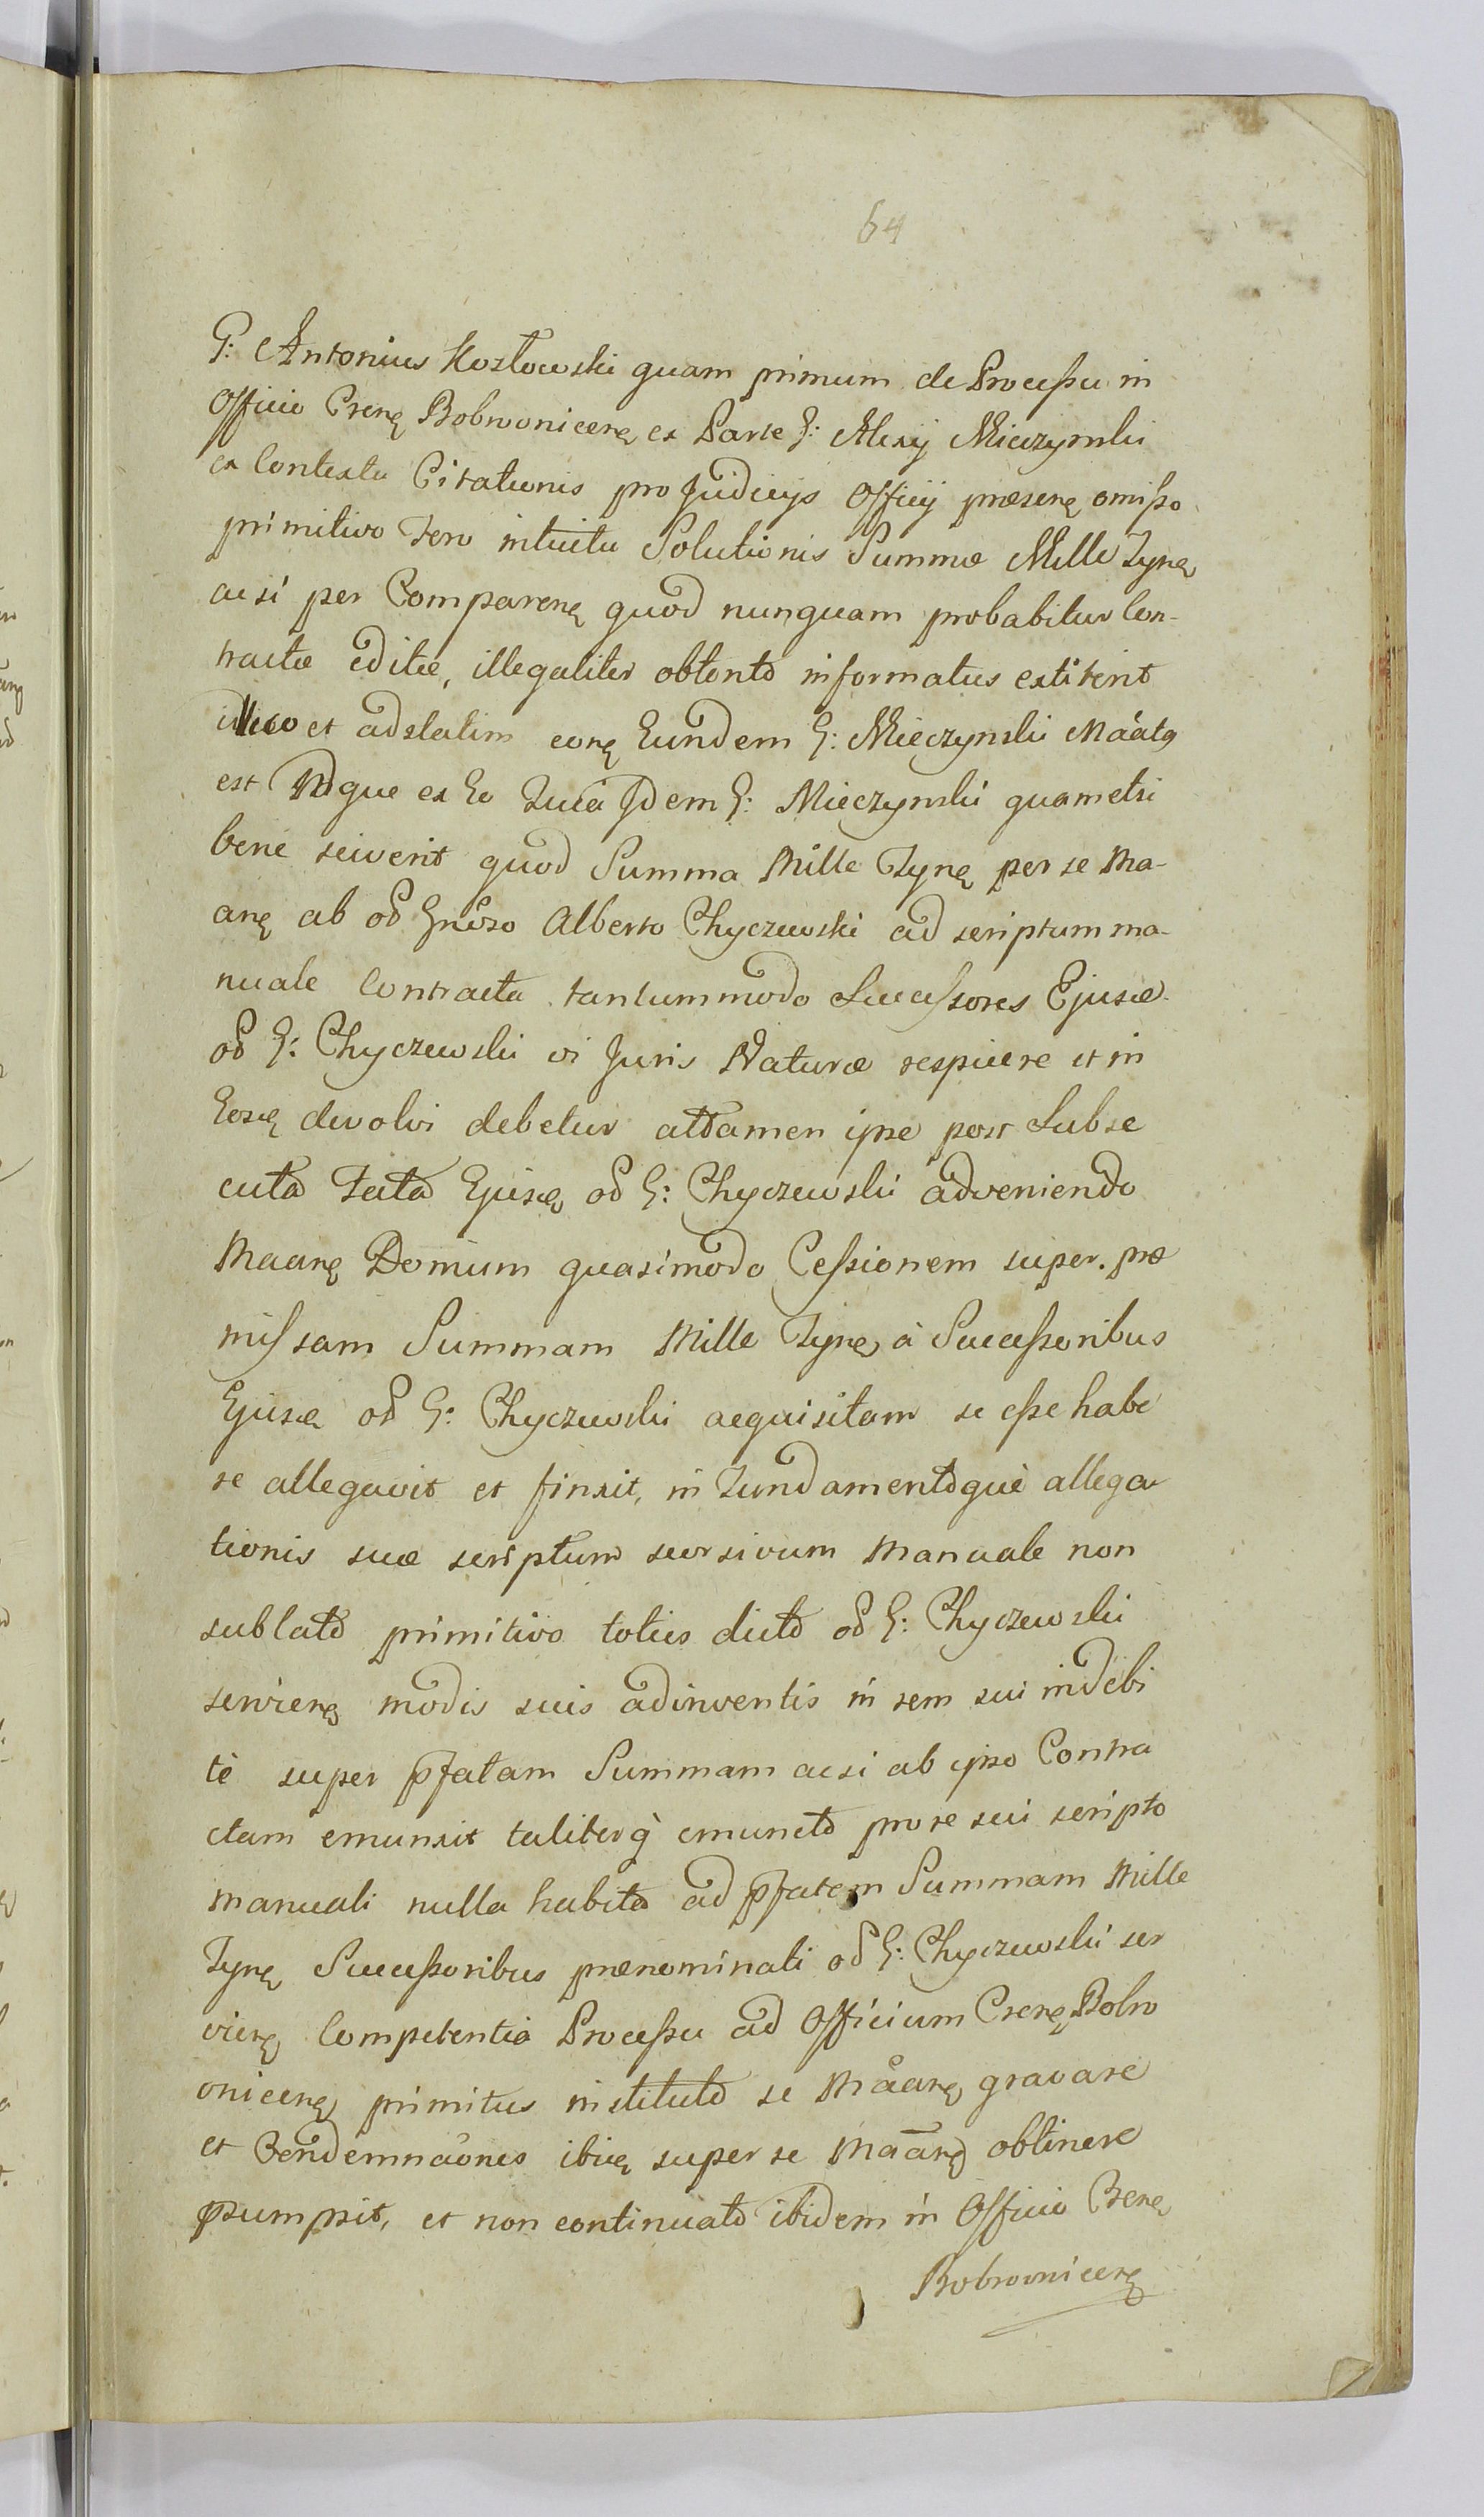 64
G: Antonius Kozłowski quam primum de Processu in
Officio Crenę Bobrovnicenę ex Parte G: Alexij Mieczynski
ex Contextu Citationis pro Judicijs Officij præsenę omisso
primitivo Fero intuitu Solutionis Summæ Mille Tynę
acsi per Comparenę quod nunquam probabitur Con-
tractæ editæ, illegaliter obtento informatus extiterit
illico et adstatim conę Eundem G: Mieczynski Maátę
est Idque ex Eo Quia Idem G: Mieczynski quametsi
bene sciverit quod Summa Mille Tynę per se Ma-
anę ab oð Gnõso Alberto Chyczewski ad scriptum ma-
nuale Contracta tantummodo Successores Ejusdę
oð G: Chyczewski vi Juris Naturæ respicere et in
Eosdę devolvi debetur attamen ipse post Subse
cuta Fata Ejusdę oð G: Chyczewski adveniendo
Maanę Domum quasimodo Cessionem super præ
missam Summam Mille Tynę à Successoribus
Ejusdę oð G: Chyczewski acquisitam se esse habe
re allegavit et finxit, in Fundamentoque allega
tionis suæ scriptum seorsivum Manuale non
sublato primitivo toties dicto oð G: Chyczewski
servienę modis suis adinventis in rem sui indebi
tè super pfatam Summam acsi ab ipso Contra
ctam emunxit taliterq̀ emuncto pro re sui scripto
manuali nulla habita ad pfatam Summam Mille
Tynę Successoribus prænominati oð G: Chyczewski ser
vienę Competentia Processu ad Officium Crenę Bobro
vnicenę primitus instituto se Maanę gravare
et Condemnaónes ibidę super se Maanę obtinere
psumpsit, et non continuato ibidem in Officio Crenę
Bobrovnicenę